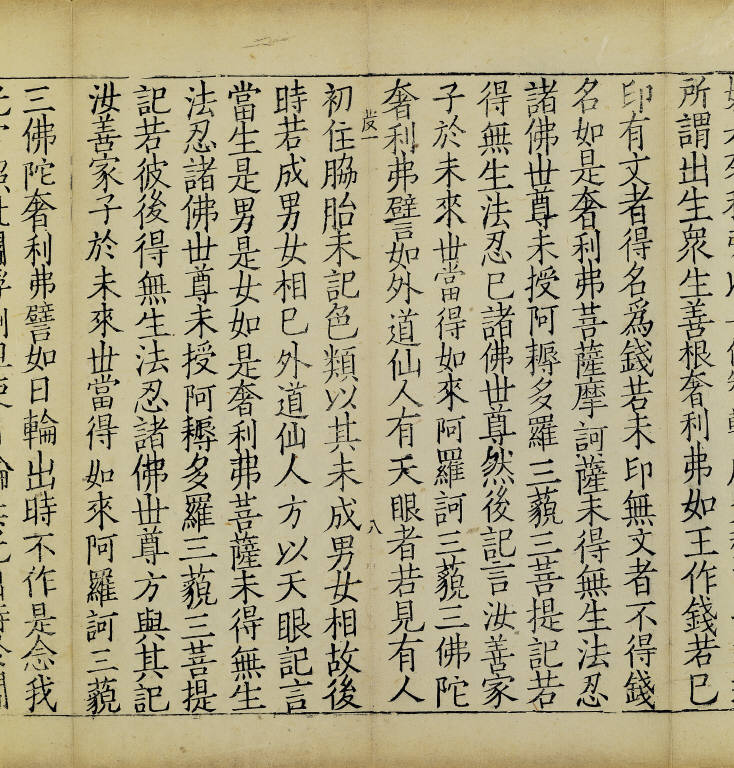 所謂出生眾生善根奢利弗如王作錢若巳
印有文者得名為錢若未印無文者不得錢
名如是奢利弗菩薩摩訶薩未得無生法忍
諸佛世尊未授阿耨多羅三藐三菩提記若
得無生法忍巳諸佛世尊然後記言汝善家
子於未來世當得如來阿羅訶三藐三佛陀
奢利弗譬如外道仙人有天眼者若見有人
八
初住脇胎未記色類以其未成男女相故後
時若成男女相巳外道仙人方以天眼記言
當生是男是女如是奢利弗菩薩未得無生
法忍諸佛世尊未授阿耨多羅三藐三菩提
記若彼後得無生法忍諸佛世尊方與其記
汝善家子於未來世當得如來阿羅訶三藐
三佛陀奢利弗譬如日輪出時不作是念我